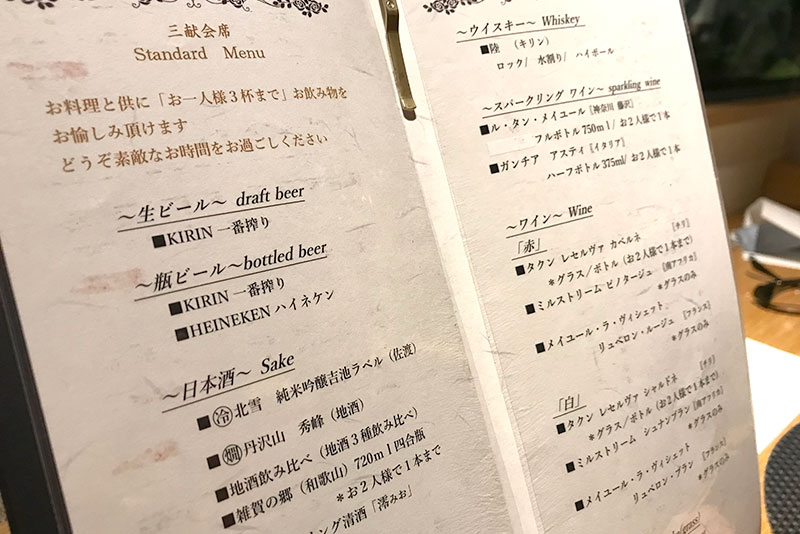 三献会席
Standard Menu
お料理と供に「お一人様3杯まで」お飲み物を
お愉しみ頂けます
どうぞ素敵なお時間をお過ごしください
～生ビール～ draft beer
■KIRIN 一番搾り
～瓶ビール～bottled beer
■KIRIN 一番搾り
■HEINEKEN ハイネケン
～日本酒～ Sake
■㊗北雪 純米吟醸吉池ラベル（佐渡）
■丹沢山 秀峰（地酒）
■地酒飲み比べ（地酒3種飲み比べ）
■雑賀の郷（和歌山）720ml四合瓶
*お2人様で1本まで
清酒「澪みお」
～ウイスキー～ Whiskey
■陸 （キリン）
ロック/ 水割り/ ハイボール
～スパークリング ワイン～ sparkling wine
■ル・タン・メイユール〖神奈川 藤沢〗
フルボトル750ml/ お2人様で1本
■ガンチア アスティ〖イタリア〗
ハーフボトル375ml/ お2人様で1本
～ワイン～ Wine
「赤」
■タクン レセルヴァ カベルネ 〖チリ〗
*グラス/ボトル（お2人様で1本まで）
■ミルストリーム ピノタージュ 〖南アフリカ〗
*グラスのみ
■メイユール・ラ・ヴィシェット
リュベロン・ルージュ 〖フランス〗
*グラスのみ
「白」
■タクン レセルヴァ シャルドネ 〖チリ〗
*グラス/ボトル（お2人様で1本まで）
■ミルストリーム シュナンブラン〖南アフリカ〗
*グラスのみ
■メイユール・ラ・ヴィシェット
リュベロン・ブラン 〖フランス〗
*グラスのみ